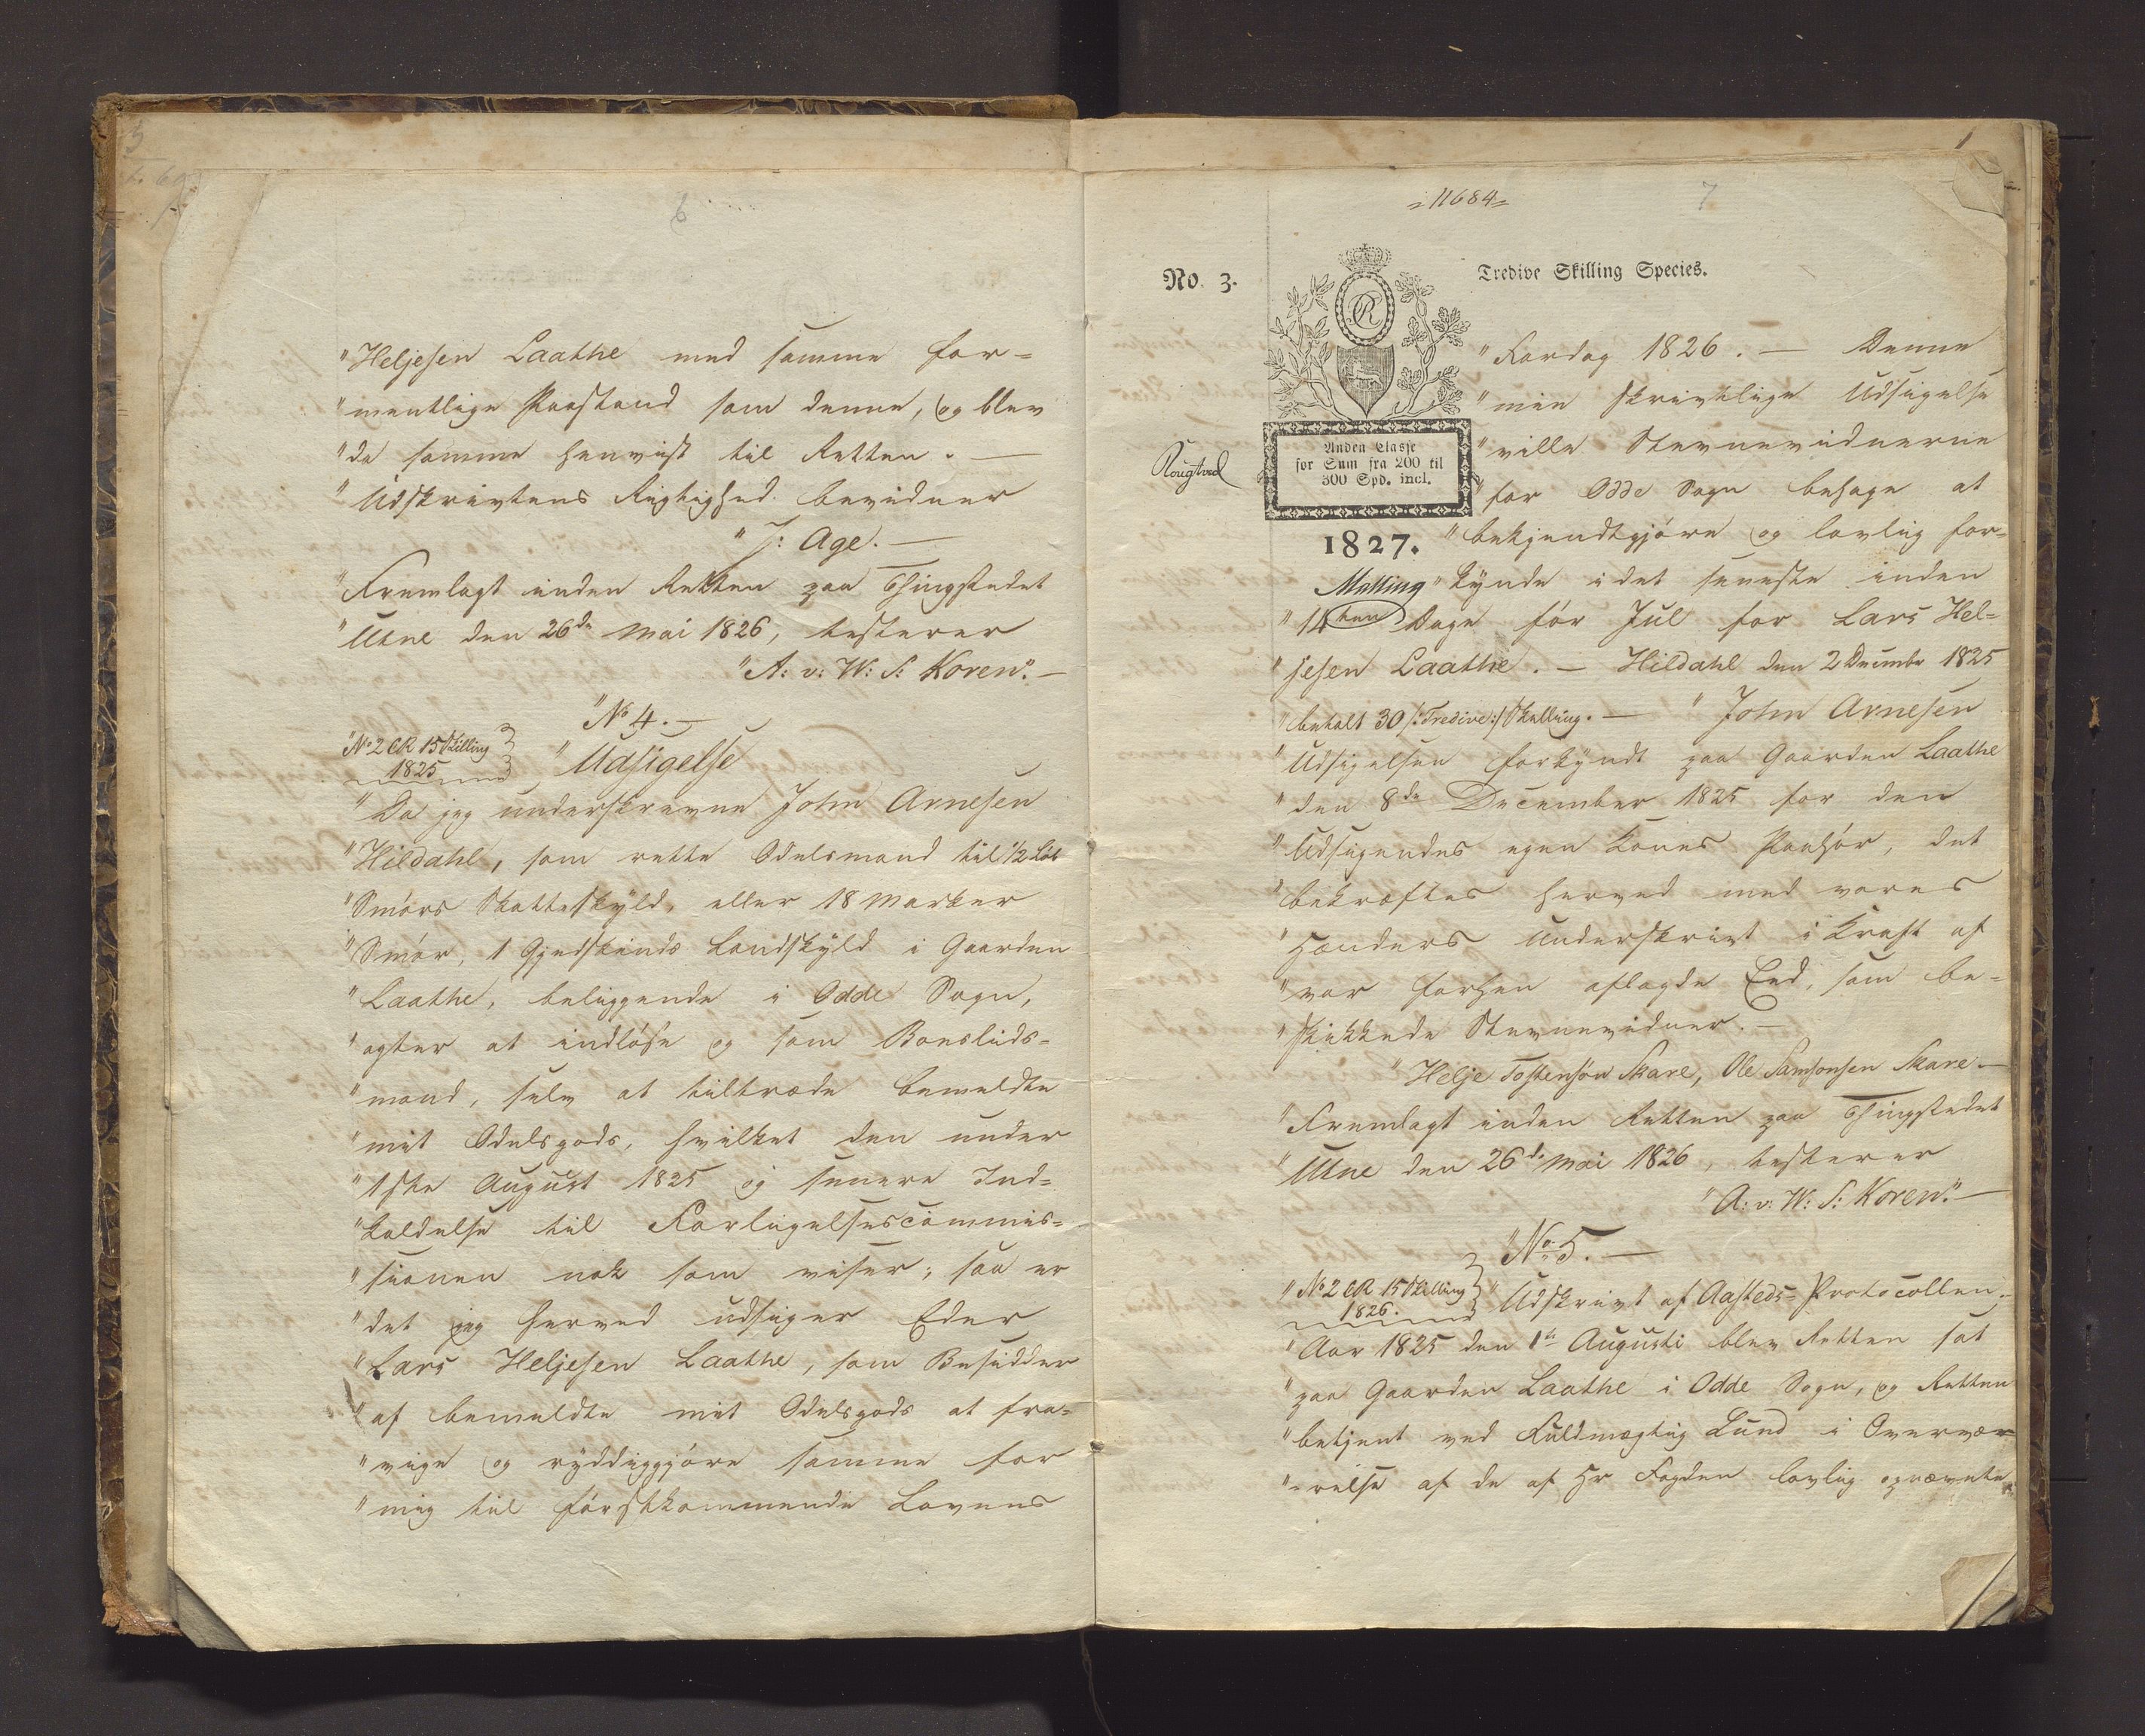 6
"Heljesen Laathe med samme for=
"mentlige Paastand som denne, og blev
"da samme henvist til Retten. —
"Udskrivtens Rigtighed bevidner
"J: Age. —
"Fremlagt inden Retten paa Thingstedet
"Utne den 26de Mai 1826, testerer
"A: v: W: S: Koren". —
"No 4. —
"No 2 CR 15 Skilling
1825
"Udsigelse
"Da jeg underskrevne John Arnesen
"Hildahl, som rette Odelsmand til 1/2 Lób
"Smórs Skatteskyld, eller 18 Marker
"Smór, 1 Gjedskinds Landskyld i Gaarden
"Laathe, beliggende i Odde Sogn,
"agter at indlóse og som Boeslids=
"mand, selv at tiltræde bemeldte
"mit Odelsgods, hvilket den under
"1ste August 1825 og senere Ind=
"kaldelse til Forligelsescommis=
"sionen nok som viser; saa er
"det jeg herved udsiger Eder
"Lars Heljesen Laathe, som Besidder
"af bemeldte mit Odelsgods at fra=
"vige og ryddiggjóre samme for
"mig til fórstkommende Lovens
1
=11684=
7
No. 3.
Tredive Skilling Species.
"Fardag 1826. — Denne
"min skrivtlige Udsigelse
Anden Classe
for Sum fra 200 til
300 Spd. incl.
Rougtved
"ville Stevnevidnerne
"for Odde Sogn behage at
1827.
"bekjendtgjóre og lovlig for=
Malling
"kynde i det seneste inden
"14ten Dage fór Jul for Lars Hel=
"jesen Laathe. — Hildahl den 2 Decembr 1825
"betalt 30 /: Tredive :/ Skilling. — "John Arnesen
"Udsigelsen forkyndt paa Gaarden Laathe
"den 8de December 1825 for den
"Udsigendes egen Kones Paahór, det
"bekræftes herved med vores
"Hænders Underskrivt i Kraft af
"vor forhen aflagde Eed, som be=
"skikkede Stevnevidner. —
"Helje Tostensón Skare, Ole Samsonsen Skare —
"Fremlagt inden Retten paa Thingstedet
"Utne den 26de Mai 1826, testerer
"A: v: W: S: Koren". —
"No 5. —
"No 2 CR 15 Skilling
1826.
"Udskrivt af Aasteds=Protocollen.
"Aar 1825 den 1te Augusti blev Retten sat
"paa Gaarden Laathe i Odde Sogn, og Retten
"betjent ved Fuldmægtig Lund i Overvæ=
"=relse af de af Hr Fogden lovlig opnævnte